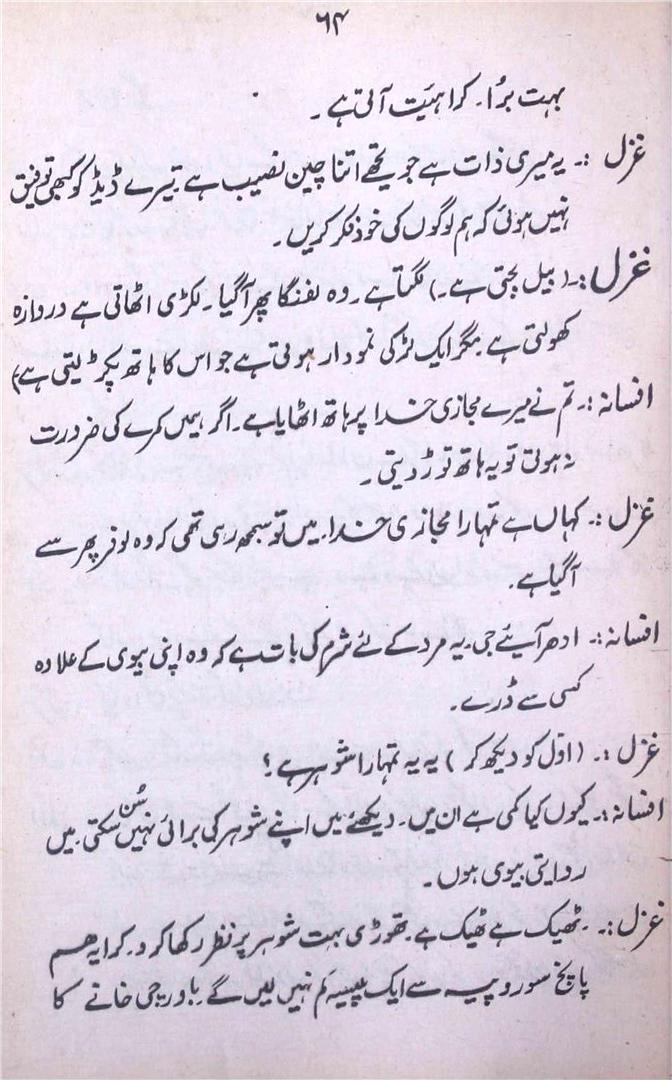 ۶۴
بہت برُا۔ کراہیَت آتی ہے۔
غزل :۔ یہ میری ذات ہے جو تجھے اتنا چین نصیب ہے۔ تیرے ڈیڈ کو کبھی توفیق
نہیں ہوئی کہ ہم لوگوں کی خود فکر کریں۔
غزل :۔ (بیل بجتی ہے۔) لگتا ہے۔ وہ لفنگا پھر آگیا۔ لکڑی اٹھاتی ہے دروازہ
کھولتی ہے۔ مگر ایک لڑکی نمودار ہوتی ہے جو اس کا ہاتھ پکڑ لیتی ہے)
افسانہ :۔ تم نے میرے مجازی خدا پر ہاتھ اٹھایا ہے۔ اگر ہمیں کمرے کی ضرورت
نہ ہوتی تو یہ ہاتھ توڑ دیتی۔
غزل :۔ کہاں ہے تمہارا مجازی خدا۔ میں تو سمجھ رہی تھی کہ وہ لوفر پھر سے
آگیا ہے۔
افسانہ :۔ ادھر آیئے جی۔ یہ مرد کے لئے شرم کی بات ہے کہ وہ اپنی بیوی کے علاوہ
کسی سے ڈرے۔
غزل :۔ (اوّل کو دیکھ کر) یہ یہ تمہارا شوہر ہے؟
افسانہ :۔ کیوں کیا کمی ہے ان میں۔ دیکھئے میں اپنے شوہر کی برائی نہیں سُن سکتی۔ میں
روایتی بیوی ہوں۔
غزل :۔ ٹھیک ہے ٹھیک ہے۔ تھوڑی بہت شوہر پر نظر رکھا کرو۔ کرایہ ہم
پانچ سو روپیہ سے ایک پیسہ کم نہیں لیں گے۔ باورچی خانے کا